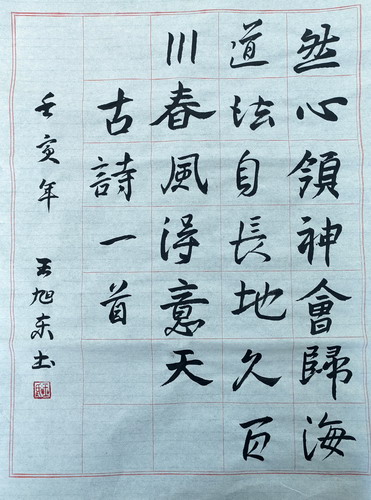 然心領神會歸海
道法自長地久百
川春風得意天
古詩一首
壬寅年 王旭东书